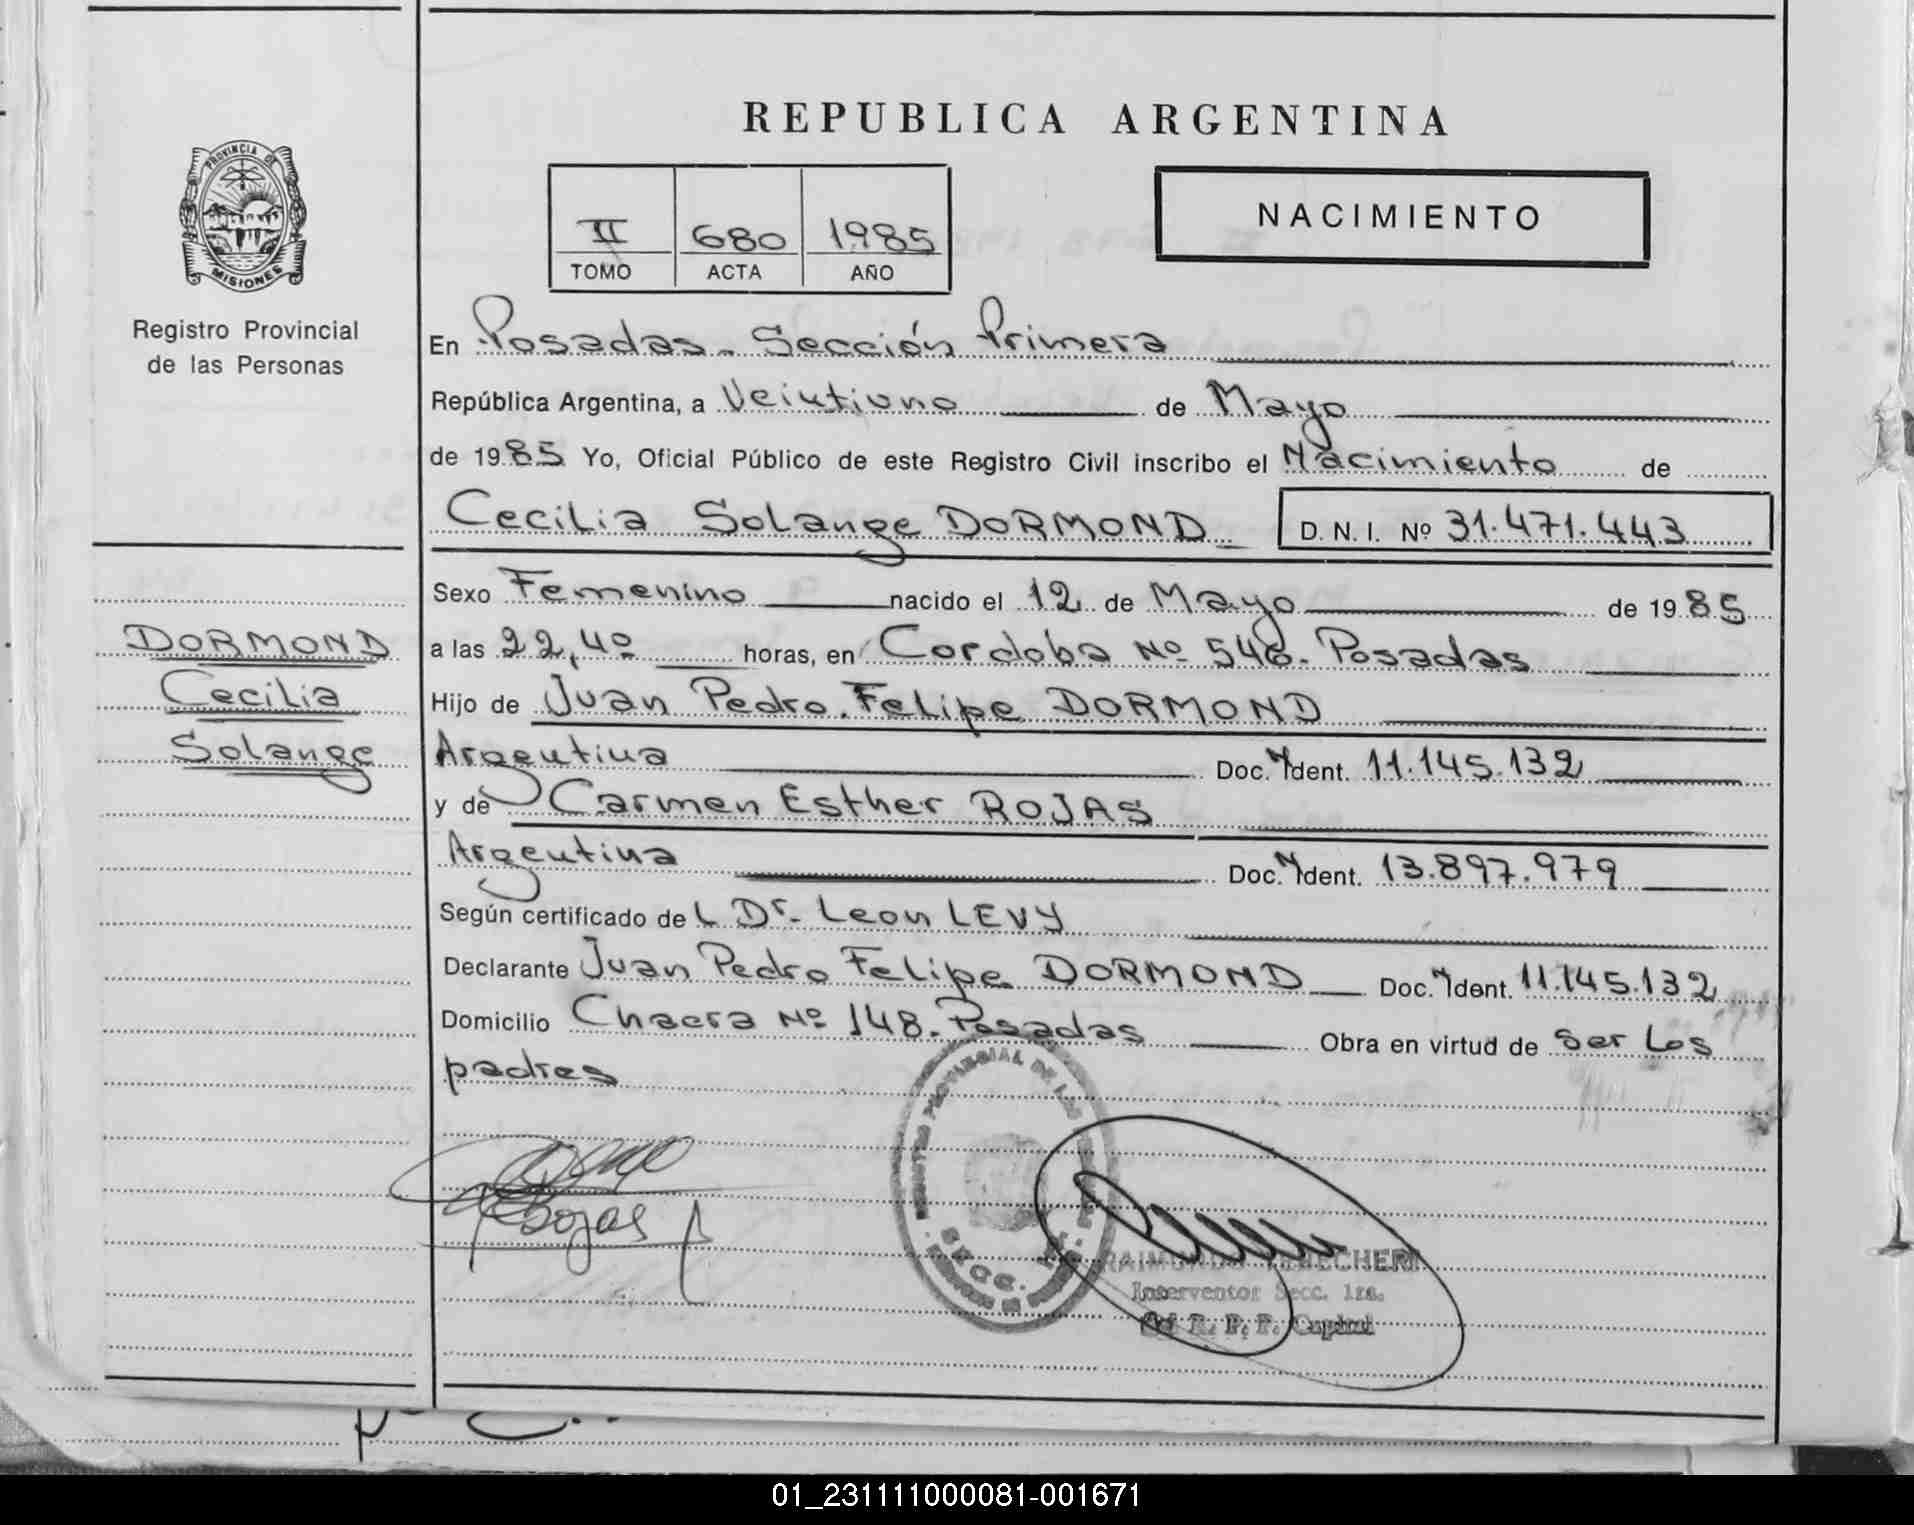 REPUBLICA ARGENTINA
PROVINCIA DE
MISIONES
Registro Provincial
de las Personas
II 680 1985
TOMO ACTA AÑO
NACIMIENTO
En Posadas - Sección Primera
República Argentina, a Veintiuno de Mayo
de 1985 Yo, Oficial Público de este Registro Civil inscribo el Nacimiento de
Cecilia Solange DORMOND
D. N. I. Nº 31.471.443
Sexo Femenino nacido el 12 de Mayo de 1985
a las 22,40 horas, en Cordoba Nº 546. Posadas
Hijo de Juan Pedro Felipe DORMOND
Argentina Doc. Ident. 11.145.132
y de Carmen Esther ROJAS
Argentina Doc. Ident. 13.897.979
Según certificado de L Dr. Leon LEVY
Declarante Juan Pedro Felipe DORMOND Doc. Ident. 11.145.132
Domicilio Chacra Nº 148. Posadas Obra en virtud de ser Los
padres
DORMOND
Cecilia
Solange
Rojas
RAIMUNDO
Interventor Secc. 1ra.
R. P. P. Capital
01_231111000081-001671